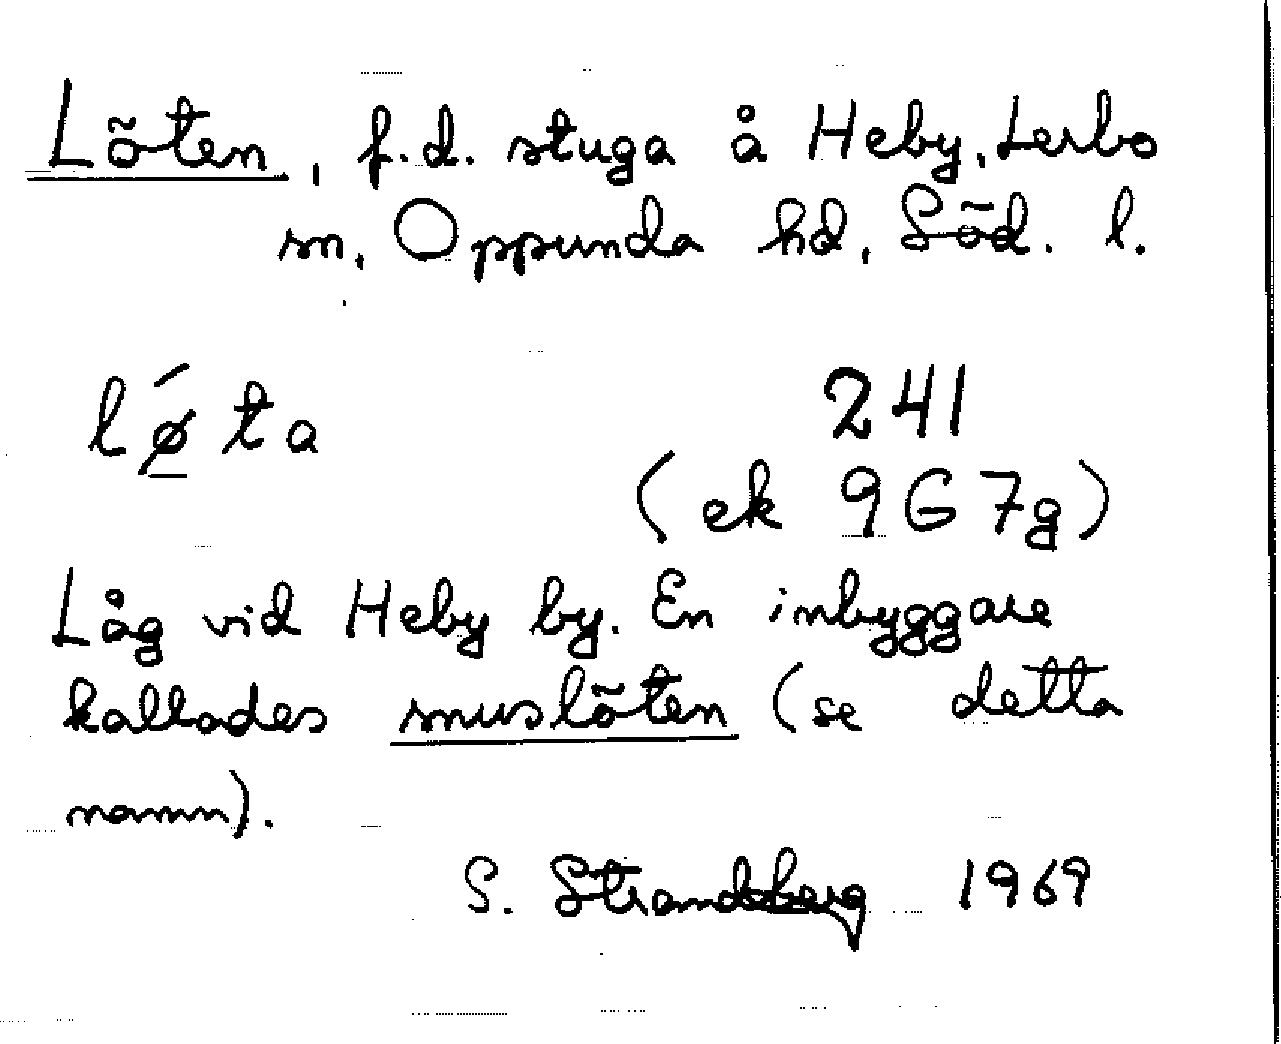 Löten, f.d. stuga å Heby, Lerbo
sn, Oppunda hd, Söd. l.
lǿ̲ta
241
(ek 9G7g)
Låg vid Heby by. En inbyggare
kallades muslöten (se detta
namn).
S. Strandberg 1969